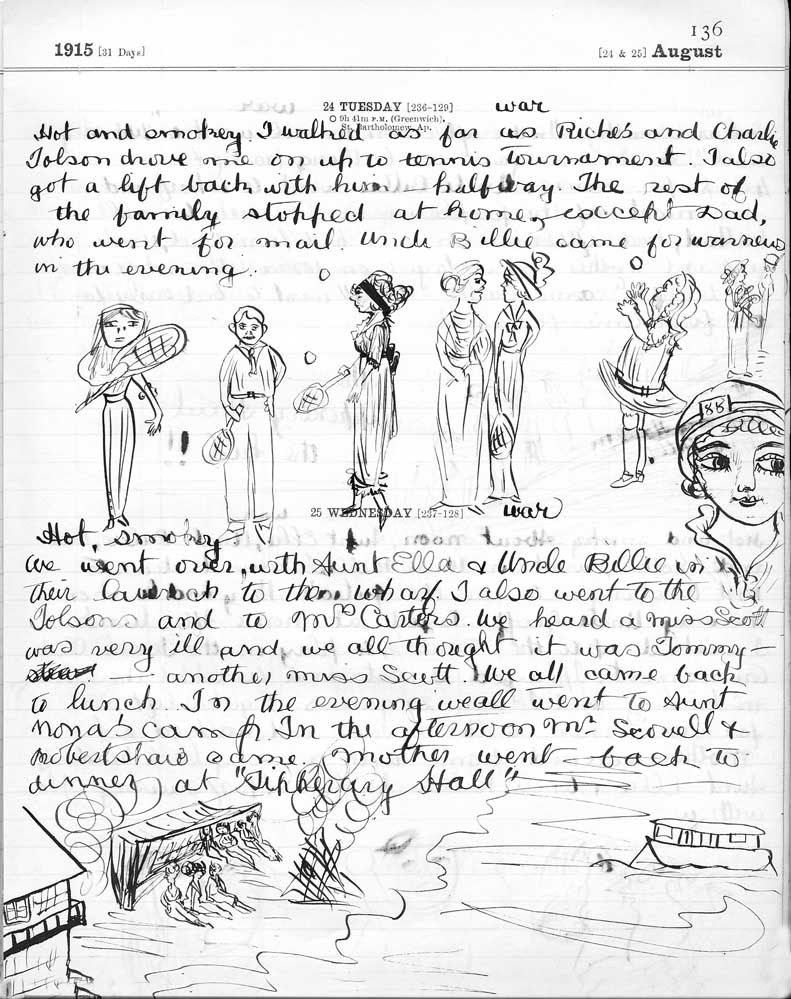 136
1915 [31 Days] [24 & 25] August
24 TUESDAY [236-129] war
9h 41m P.M. (Greenwich).
St. Bartholomew, Ap.
Hot and smokey. I walked as far as Riche's and Charlie
Tolson drove me on up to tennis tournament. I also
got a lift back with him - halfway. The rest of
the family stopped at home, except Dad,
who went for mail. Uncle Billie came for
in the evening.
88
!!
25 WEDNESDAY [237-128] war
Hot, smokey
We went over, with Aunt Ella & Uncle Billie in
their launch to the wharf. I also went to the
Tolsons and to Mrs Carters. We heard a miss Scott
was very ill and, we all thought it was Tommy -
- another miss Scott. We all came back
to lunch. In the evening we all went to Aunt
Nona's camp. In the afternoon Mr Scovell &
Robertshaw came. Mother went back to
dinner at "Tipperary Hall"